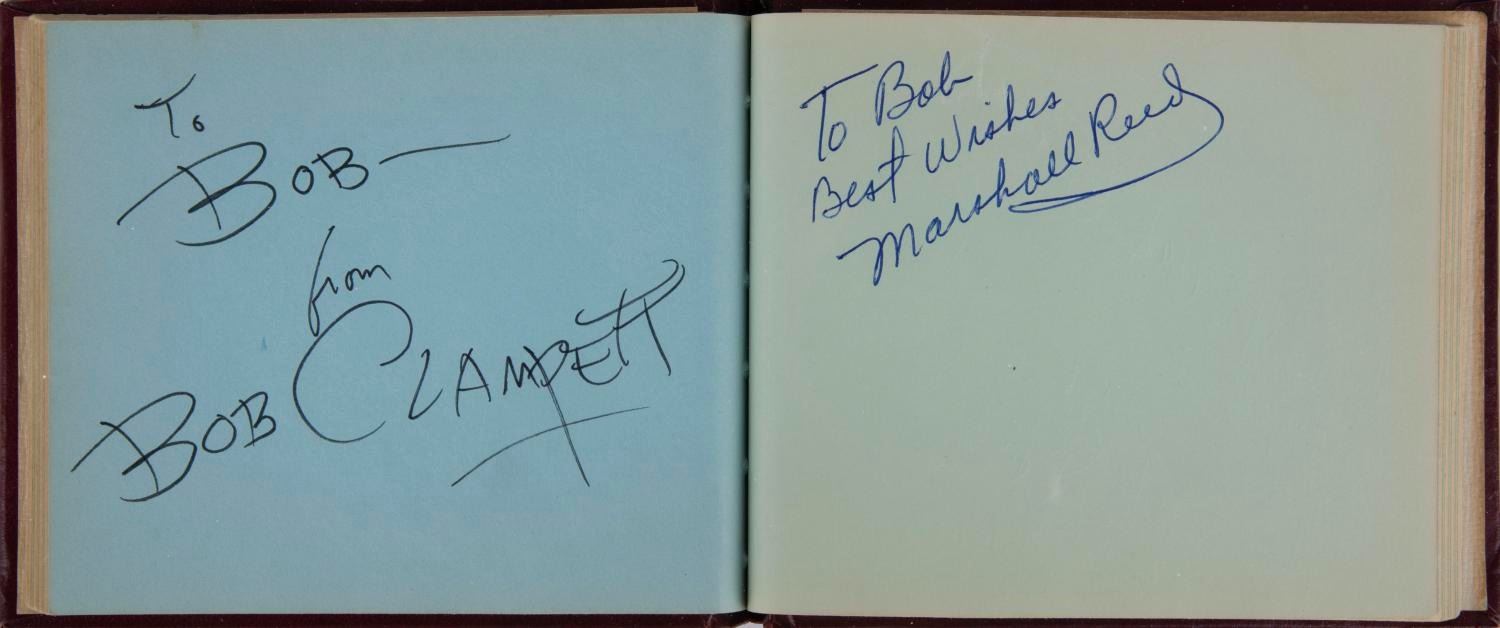 To
BOB —
from
BOB CLAMPETT
To Bob
Best Wishes
Marshall Reed